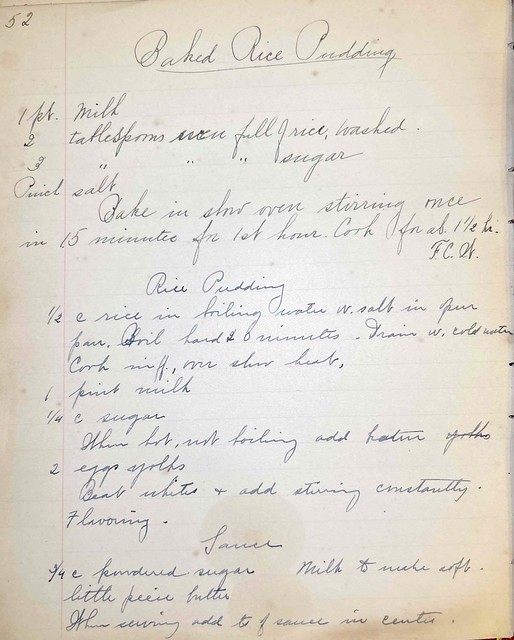 52
Baked Rice Pudding
1 pt. Milk
2 tablespoons even full of rice, washed.
3 " " " sugar
Pinch salt
Bake in slow oven stirring once
in 15 minutes for 1st hour. Cook for ab. 1½ hr.
F.C.W.
Rice Pudding
½ c rice in boiling water w. salt in open
pan. Boil hard 20 minutes. Drain w. cold water
Cook in over slow heat,
1 pint milk
¼ c sugar
When hot, not boiling add beaten yolks
2 eggs yolks
Beat whites + add stirring constantly.
Flavoring.
Sauce
¾ c powdered sugar Milk to make soft.
little piece butter
When serving add t of sauce in centre.